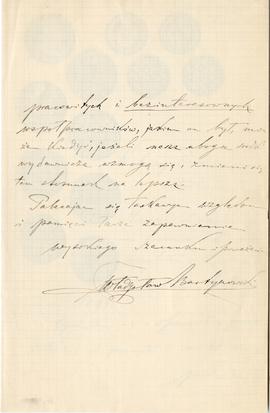 pracowitych i bezinteresownych
współpracowników, jakim on był, może
że kiedyś, jeżeli nasz ubogi
wydawnicze wzmogą się, zmieni się
ten stosunek na lepsze.
Polecając się łaskawym względom
i pamięci łączę zapewnienie
wysokiego szacunku i
Władysław Bartynowski